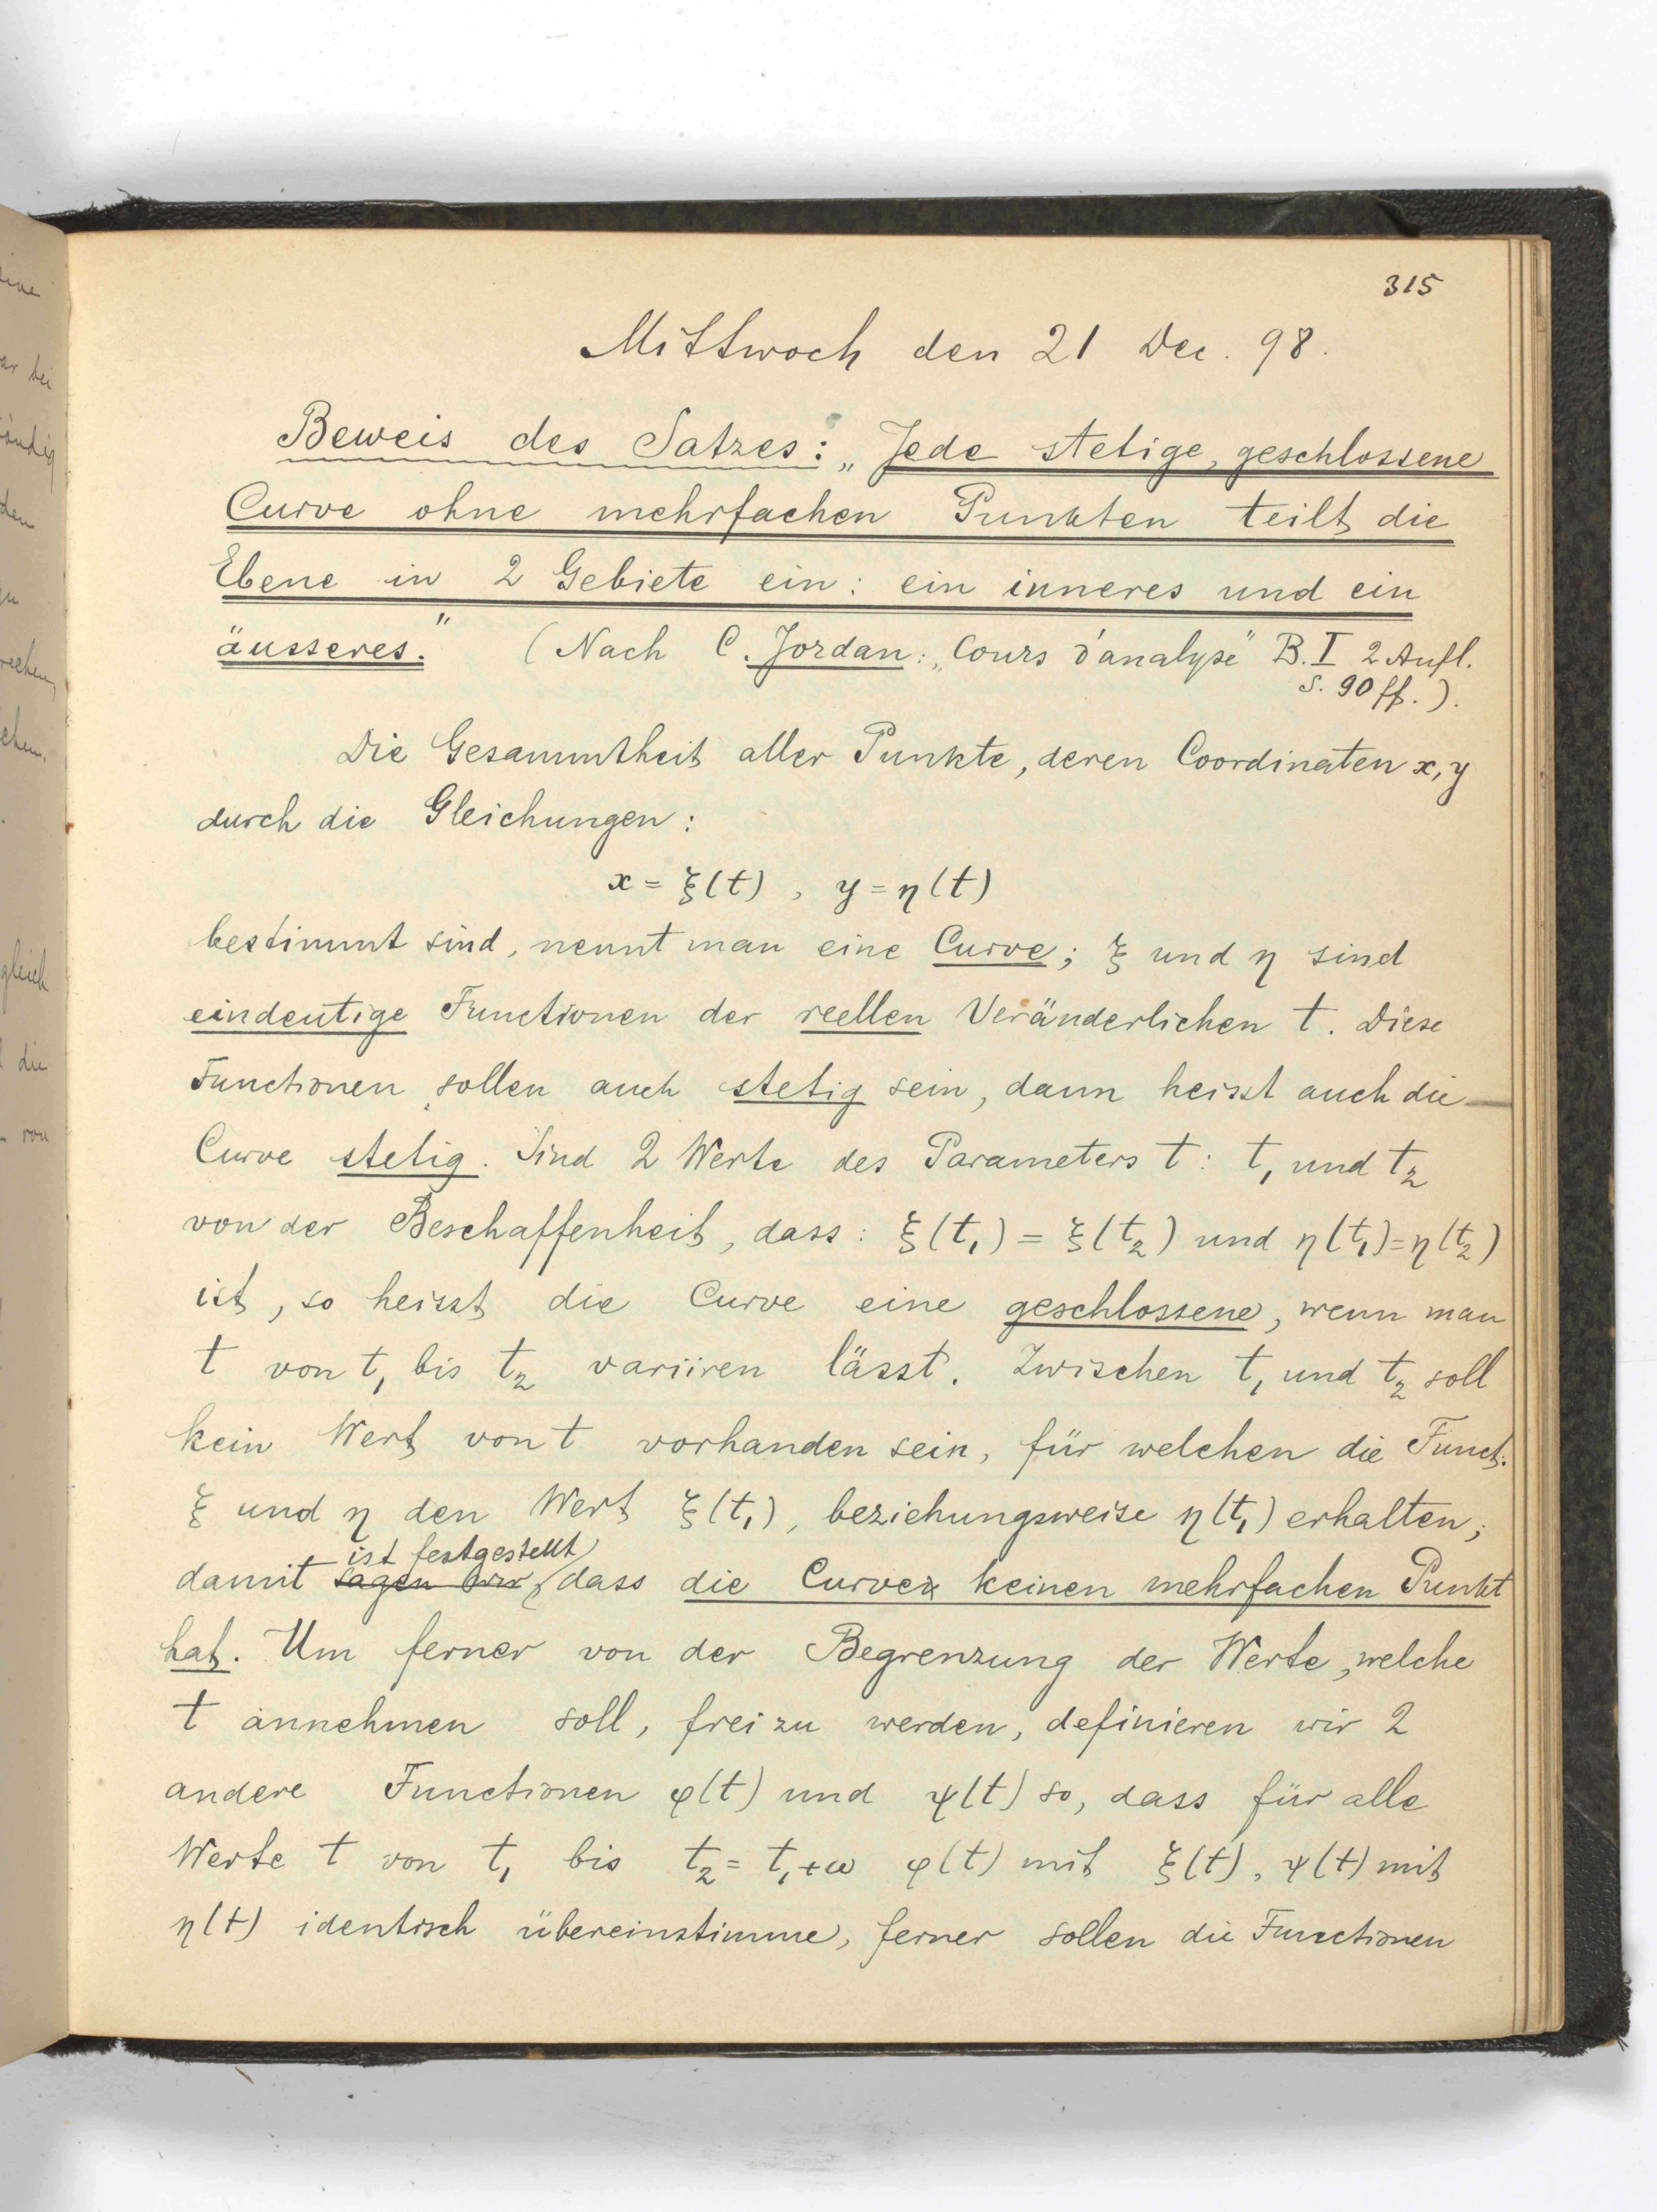 315
Mittwoch den 21 Dec. 98.
Beweis des Satzes: „Jede stetige, geschlossene
Curve ohne mehrfachen Punkten teilt die
Ebene in 2 Gebiete ein: ein inneres und ein
äusseres." (Nach C. Jordan: „Cours d'analyse" B. I 2 Aufl.
S. 90 ff.).
Die Gesammtheit aller Punkte, deren Coordinaten x, y
durch die Gleichungen:
x = ξ(t), y = η(t)
bestimmt sind, nennt man eine Curve; ξ und η sind
eindeutige Functionen der reellen Veränderlichen t. Diese
Functionen sollen auch stetig sein, dann heisst auch die
Curve stetig. Sind 2 Werte des Parameters t: t₁ und t₂
von der Beschaffenheit, dass: ξ(t₁) = ξ(t₂) und η(t₁) = η(t₂)
ist, so heisst die Curve eine geschlossene, wenn man
t von t₁ bis t₂ variiren lässt. Zwischen t₁ und t₂ soll
kein Wert von t vorhanden sein, für welchen die Funct.
ξ und η den Wert ξ(t₁), beziehungsweise η(t₁) erhalten;
ist festgestellt
damit sagen wir, dass die Curve keinen mehrfachen Punkt
hat. Um ferner von der Begrenzung der Werte, welche
t annehmen soll, frei zu werden, definieren wir 2
andere Functionen φ(t) und ψ(t) so, dass für alle
Werte t von t₁ bis t₂ = t₁+ω φ(t) mit ξ(t), ψ(t) mit
η(t) identisch übereinstimme, ferner sollen die Functionen